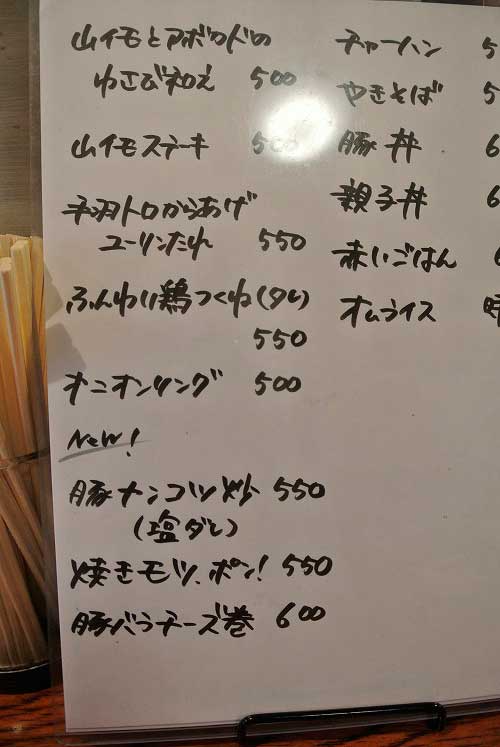 山イモとアボカドの
わさび和え 500
山イモステーキ 500
手羽トロからあげ
ユーリンたれ 550
ふんわり鶏つくね(タレ)
550
オニオンリング 500
New!
豚ナンコツ炒 550
(塩ダレ)
焼きモツ、ポン! 550
豚バラチーズ巻 600
チャーハン 5
やきそば 5
豚丼 6
親子丼 6
赤いごはん 6
オムライス 時